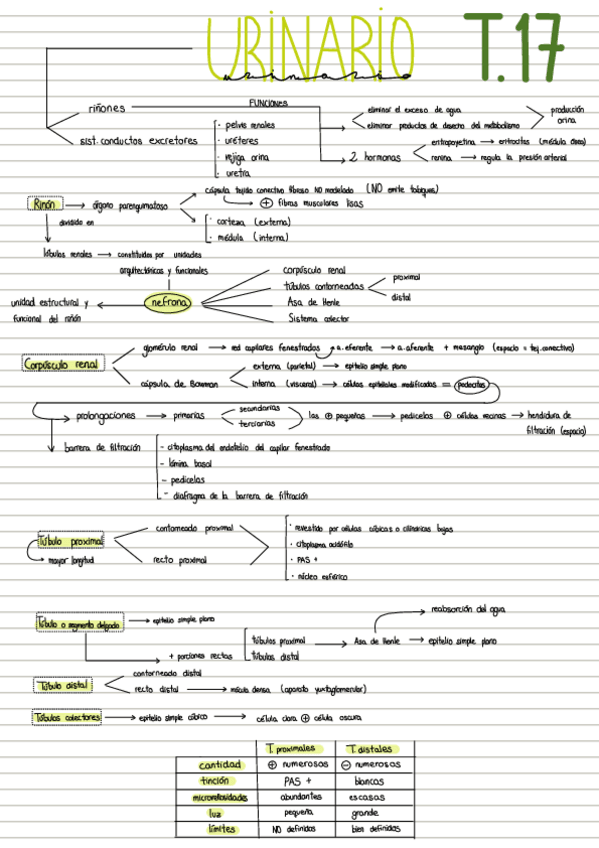 URINARIO T.17
urinario
riñones
FUNCIONES
eliminar el exceso de agua
eliminar productos de desecho del metabolismo
producción orina
sist. conductos excretores
· pelvis renales
· uréteres
· vejiga orina
· uretra
2 hormonas
eritropoyetina → eritrocitos (médula ósea)
renina → regula la presión arterial
Riñón → órgano parenquimatoso
cápsula tejido conectivo fibroso NO modelado (NO emite tabiques)
⊕ fibras musculares lisas
· corteza (externa)
· médula (interna)
dividido en
lóbulos renales → constituidos por unidades
arquitectónicas y funcionales
nefrona
unidad estructural y
funcional del riñón
corpúsculo renal
túbulos contorneados
proximal
distal
Asa de Henle
Sistema colector
Corpúsculo renal
glomérulo renal → red capilares fenestrados → a. eferente → a. aferente + mesangio (espacio = tej. conectivo)
cápsula de Bowman
externa (parietal) → epitelio simple plano
interna (visceral) → células epiteliales modificadas = podocitos
prolongaciones → primarias
secundarias
terciarias
las ⊕ pequeñas → pedicelos ⊕ células vecinas → hendidura de
filtración (espacio)
barrera de filtración
- citoplasma del endotelio del capilar fenestrado
- lámina basal
- pedicelos
- diafragma de la barrera de filtración
Túbulo proximal
mayor longitud
contorneado proximal
recto proximal
· revestido por células cúbicas o cilíndricas bajas
· citoplasma acidófilo
· PAS +
· núcleo esférico
Túbulo o segmento delgado → epitelio simple plano
+ porciones rectas
túbulos proximal
túbulos distal
Asa de Henle → epitelio simple plano
reabsorción del agua
Túbulo distal
contorneado distal
recto distal → mácula densa (aparato yuxtaglomerular)
Túbulos colectores → epitelio simple cúbico → célula clara ⊕ célula oscura
T. proximales T. distales
cantidad ⊕ numerosos ⊖ numerosos
tinción PAS + blancos
microvellosidades abundantes escasas
luz pequeña grande
límites NO definidos bien definidos